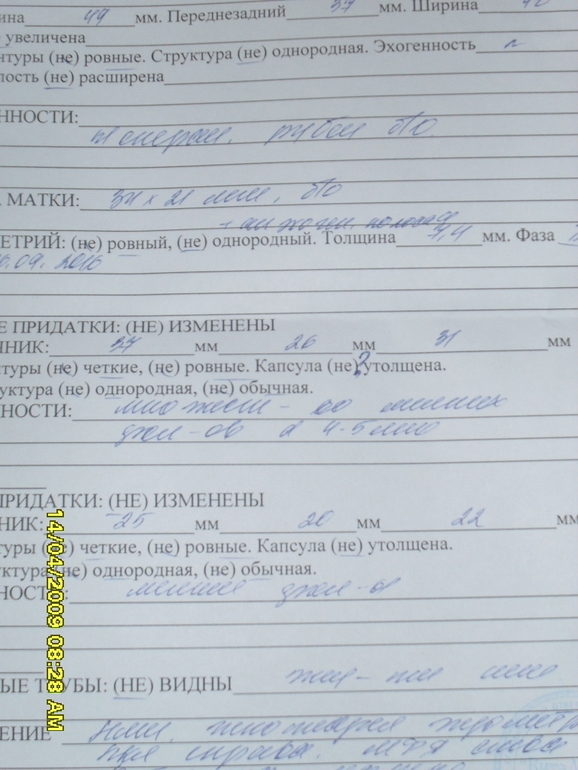 ина 49 мм. Переднезадний 37 мм. Ширина
увеличена
нтуры (не) ровные. Структура (не) однородная. Эхогенность
лость (не) расширена
ННОСТИ:
МАТКИ: 34 х 21 мм, б/о
ЕТРИЙ: (не) ровный, (не) однородный. Толщина 7,4 мм. Фаза
.09. 2016
Е ПРИДАТКИ: (НЕ) ИЗМЕНЕНЫ
ЧНИК: 37 мм 26 мм 31 мм
нтуры (не) четкие, (не) ровные. Капсула (не) ? утолщена.
уктура (не) однородная, (не) обычная.
НОСТИ: множест-во мелких
фол-ов d 4-5 мм
ПРИДАТКИ: (НЕ) ИЗМЕНЕНЫ
НИК: 25 мм 20 мм 22 мм
туры (не) четкие, (не) ровные. Капсула (не) утолщена.
уктура (не) однородная, (не) обычная.
НОСТИ: мелкие фол-ы
ЫЕ ТРУБЫ: (НЕ) ВИДНЫ
ЕНИЕ
справа. МФЯ слева
14/04/2009 08:28 AM